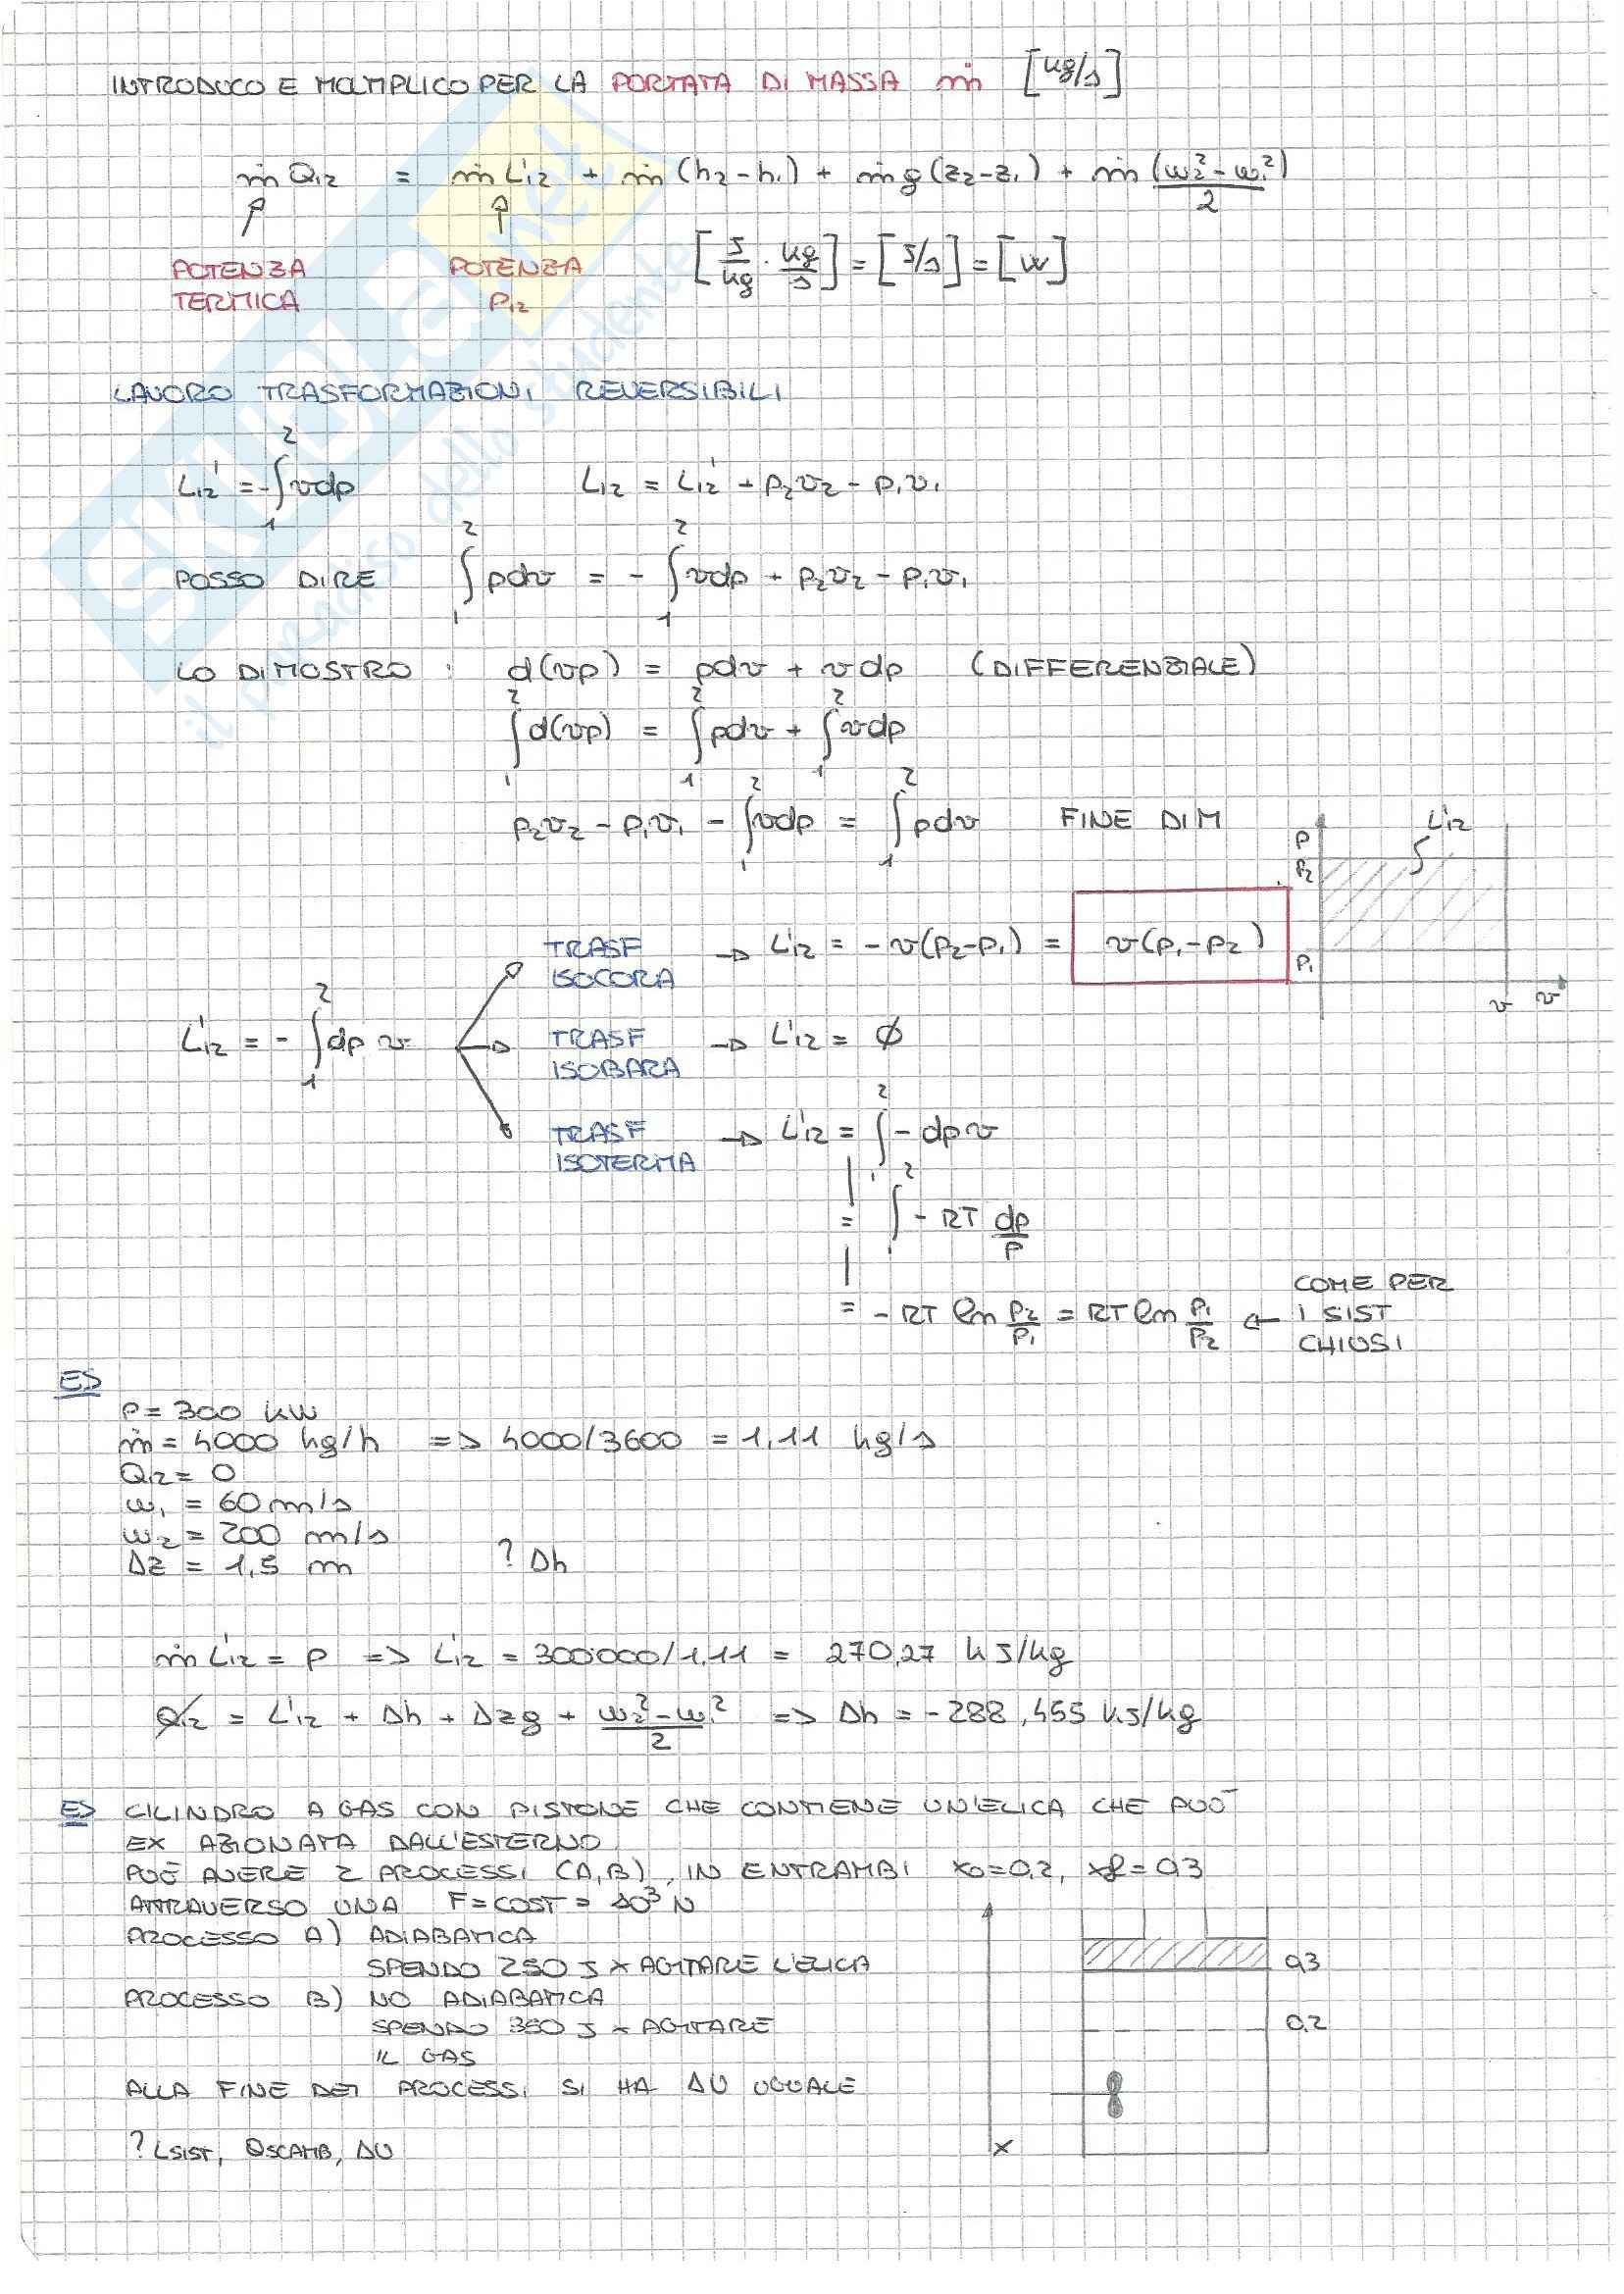 INTRODUCO E MOLTIPLICO PER LA PORTATA DI MASSA ṁ [kg/s]
ṁ Q₁₂ = ṁ L'₁₂ + ṁ (h₂-h₁) + ṁ g (z₂-z₁) + ṁ (w₂²-w₁²)/2
POTENZA TERMICA
POTENZA P₁₂
[J/kg · kg/s] = [J/s] = [W]
LAVORO TRASFORMAZIONI REVERSIBILI
L'₁₂ = -∫₁² vdp L₁₂ = L'₁₂ + p₂v₂ - p₁v₁
POSSO DIRE ∫₁² pdv = - ∫₁² vdp + p₂v₂ - p₁v₁
LO DIMOSTRO : d(vp) = pdv + vdp (DIFFERENZIALE)
∫₁² d(vp) = ∫₁² pdv + ∫₁² vdp
p₂v₂ - p₁v₁ - ∫₁² vdp = ∫₁² pdv FINE DIM
P P₂ P₁ L'₁₂ v v
L'₁₂ = - ∫₁² dp v
TRASF ISOCORA → L'₁₂ = -v(p₂-p₁) = v(p₁-p₂)
TRASF ISOBARA → L'₁₂ = ∅
TRASF ISOTERMA → L'₁₂ = ∫₁² - dp v
= ∫₁² - RT dp/p
= - RT ln p₂/p₁ = RT ln p₁/p₂ ← COME PER I SIST CHIUSI
ES
P = 300 kW
ṁ = 4000 kg/h => 4000/3600 = 1,11 kg/s
Q₁₂ = 0
w₁ = 60 m/s
w₂ = 200 m/s
Δz = 1,5 m ? Δh
ṁ L'₁₂ = P => L'₁₂ = 300000/1,11 = 270,27 kJ/kg
Q₁₂ = L'₁₂ + Δh + Δzg + (w₂²-w₁²)/2 => Δh = -288,455 kJ/kg
ES CILINDRO A GAS CON PISTONE CHE CONTIENE UN'ELICA CHE PUÒ
EX AZIONATA DALL'ESTERNO
PUÒ AVERE 2 PROCESSI (A,B), IN ENTRAMBI x₀=0,2, xf=0,3
ATTRAVERSO UNA F=COST= 10³ N
PROCESSO A) ADIABATICA
SPENDO 250 J x AGITARE L'ELICA
PROCESSO B) NO ADIABATICA
SPENDO 350 J x AGITARE
IL GAS
ALLA FINE DEI PROCESSI SI HA ΔU UGUALE
? LSIST, QSCAMB, ΔU
0,3
0,2
x
SKUOLA.net
il paradiso dello studente